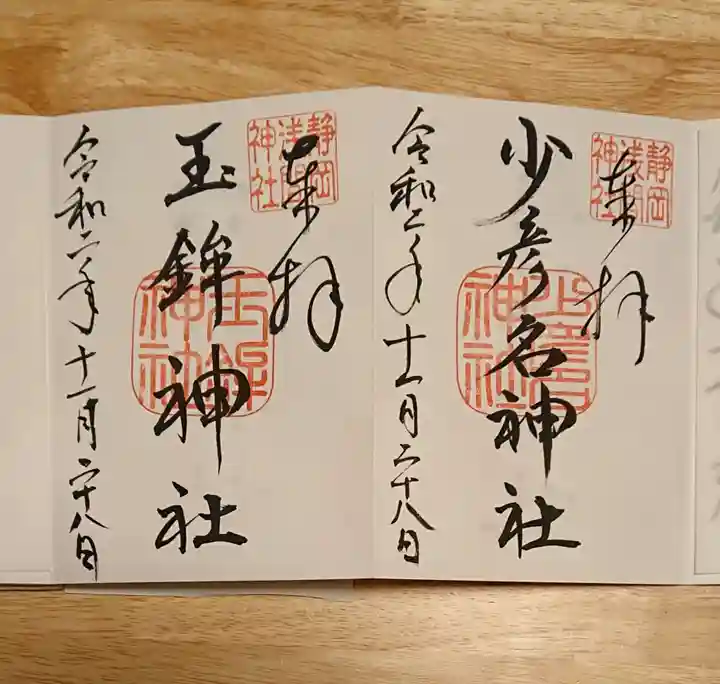 奉拝
静岡浅間神社
少彦名神社
少彦名神社
令和二年十一月二十八日
奉拝
静岡浅間神社
玉鉾神社
玉鉾神社
令和二年十一月二十八日